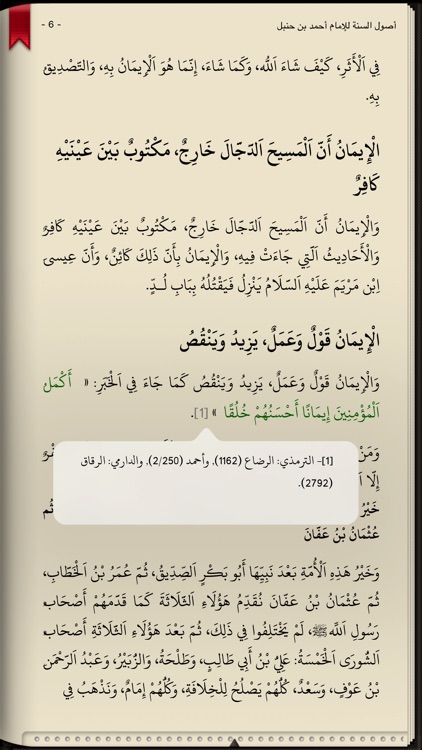 أصول السنة للإمام أحمد بن حنبل
- 6 -
فِي اَلْأَثَرِ، كَيْفَ شَاءَ اَللَّهِ، وَكَمَا شَاءَ، إِنَّمَا هُوَ اَلْإِيمَانُ بِهِ، وَالتَّصْدِيقُ
بِهِ.
الْإِيمَانُ أَنَّ اَلْمَسِيحَ اَلدَّجَّالَ خَارِجٌ، مَكْتُوبٌ بَيْنَ عَيْنَيْهِ
كَافِرٌ
وَالْإِيمَانُ أَنَّ اَلْمَسِيحَ اَلدَّجَّالَ خَارِجٌ، مَكْتُوبٌ بَيْنَ عَيْنَيْهِ كَافِرٌ
وَالْأَحَادِيثُ اَلَّتِي جَاءَتْ فِيهِ، وَالْإِيمَانُ بِأَنَّ ذَلِكَ كَائِنٌ، وَأَنَّ عِيسى
اِبْن مَرْيَمَ عَلَيْهِ اَلسَّلَامُ يَنْزِلُ فَيَقْتُلُهُ بِبَابِ لُـدٍّ.
الْإِيمَانُ قَوْلٌ وَعَمَلٌ، يَزِيدُ وَيَنْقُصُ
وَالْإِيمَانُ قَوْلٌ وَعَمَلٌ، يَزِيدُ وَيَنْقُصُ كَمَا جَاءَ فِي اَلْخَبَرِ: « أَكْمَلُ
اَلْمُؤْمِنِينَ إِيمَانًا أَحْسَنُهُمْ خُلُقًا » [1].
وَمَنْ
[1]- الترمذي: الرضاع (1162)، وأحمد (2/250)، والدارمي: الرقاق
(2792).
إِلَّا
خَيْرُ ثُم
عُثْمَانُ بْنُ عَفَّانَ
وَخَيْرُ هَذِهِ اَلْأُمَّةِ بَعْدَ نَبِيِّهَا أَبُو بَكْرٍ اَلصِّدِّيقُ، ثُمَّ عُمَرُ بْنُ اَلْخَطَّابِ،
ثُمَّ عُثْمَانُ بْنُ عَفَّانَ نُقَدِّمُ هَؤُلَاءِ اَلثَّلَاثَةَ كَمَا قَدَّمَهُمْ أَصْحَابُ
رَسُولِ اَللَّهِ ﷺ، لَمْ يَخْتَلِفُوا فِي ذَلِكَ، ثُمَّ بَعْدَ هَؤُلَاءِ اَلثَّلَاثَةِ أَصْحَابُ
اَلشُّورَى اَلْخَمْسَةُ: عَلِيُّ بْنُ أَبِي طَالِبٍ، وَطَلْحَةُ، وَالزُّبَيْرُ، وَعَبْدُ اَلرَّحْمَنِ
بْنُ عَوْفٍ، وَسَعْدٌ، كُلُّهُمْ يَصْلُحُ لِلْخِلَافَةِ، وَكُلُّهُمْ إِمَامٌ، وَنَذْهَبُ فِي